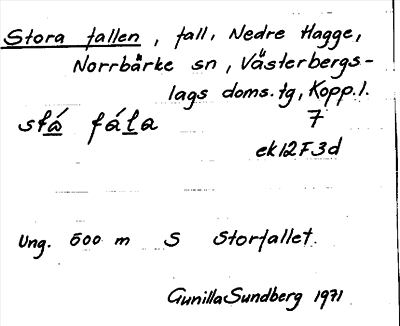 Stora fallen, fall, Nedre Hagge,
Norrbärke sn, Västerbergs-
lags doms. tg, Kopp. l.
stá fála 7
ek12F3d
Ung. 500 m S Storfallet.
Gunilla Sundberg 1971